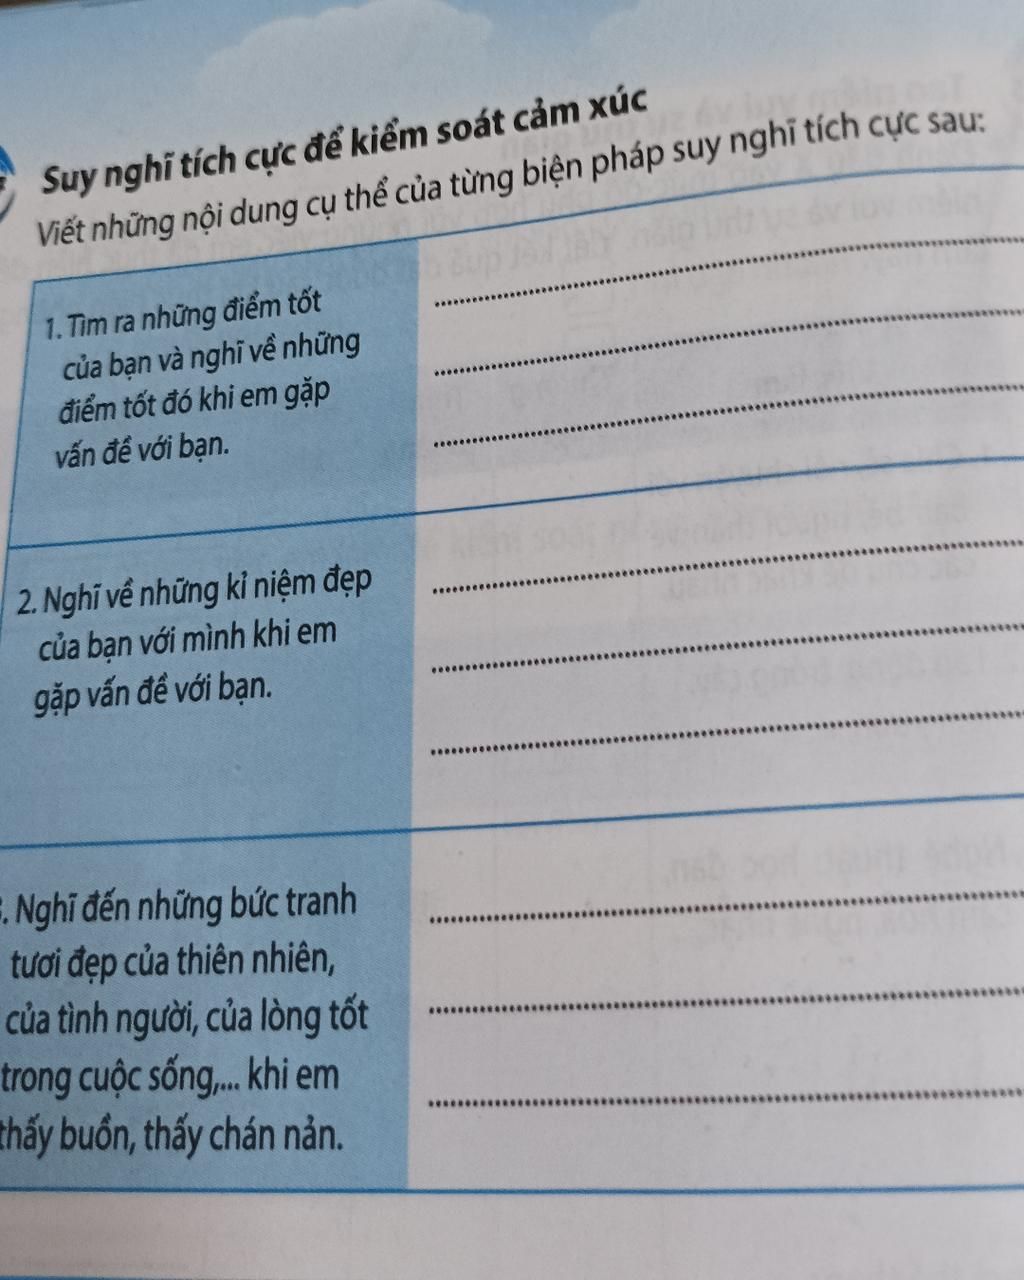 Suy nghĩ tích cực để kiểm soát cảm xúc
Viết những nội dung cụ thể của từng biện pháp suy nghĩ tích cực sau:
1. Tìm ra những điểm tốt
của bạn và nghĩ về những
điểm tốt đó khi em gặp
vấn đề với bạn.
2. Nghĩ về những kỉ niệm đẹp
của bạn với mình khi em
gặp vấn đề với bạn.
. Nghĩ đến những bức tranh
tươi đẹp của thiên nhiên,
của tình người, của lòng tốt
trong cuộc sống,... khi em
thấy buồn, thấy chán nản.